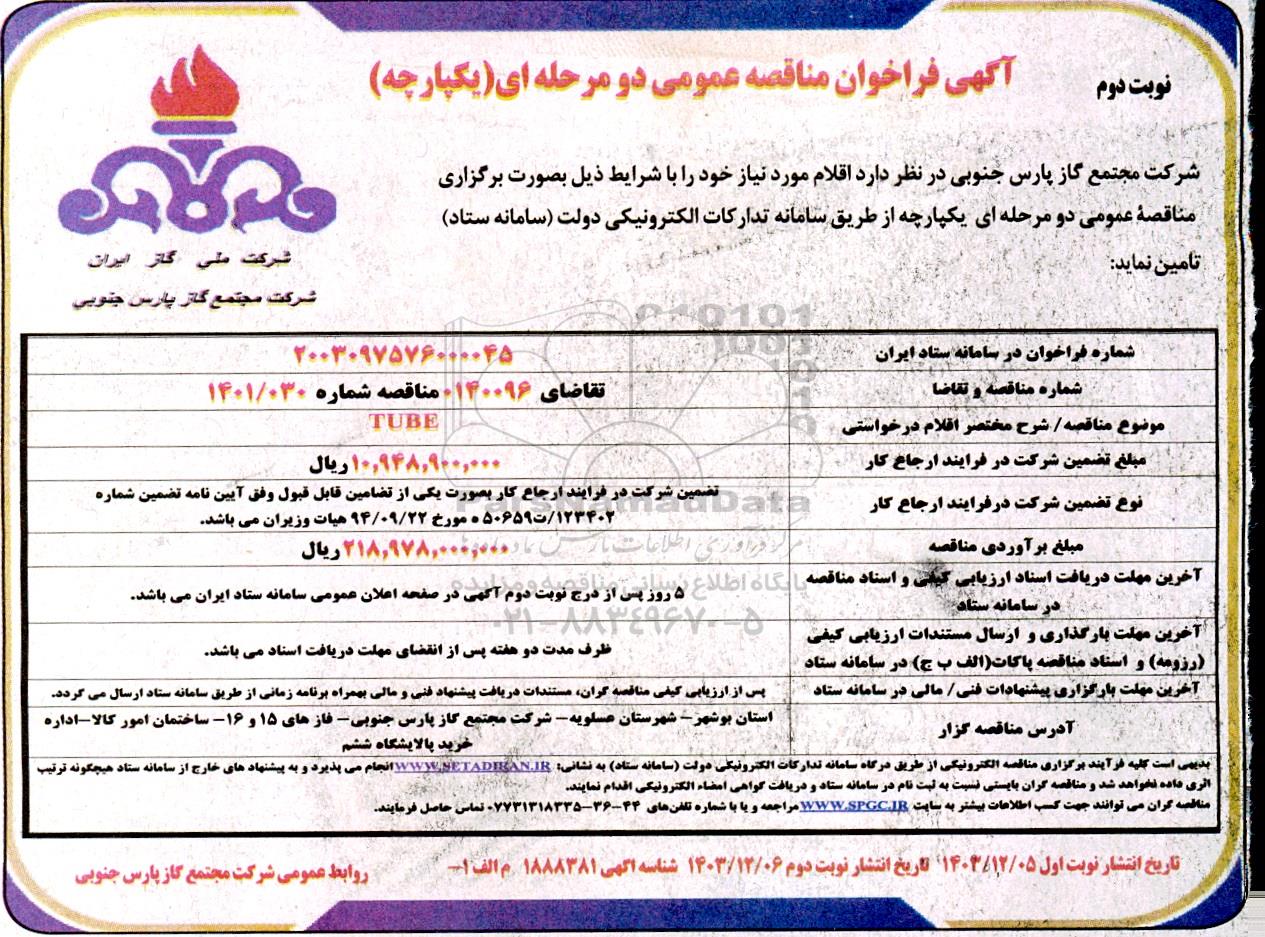 نوبت دوم
آگهی فراخوان مناقصه عمومی دو مرحله ای(یکپارچه)
شرکت مجتمع گاز پارس جنوبی در نظر دارد اقلام مورد نیاز خود را با شرایط ذیل بصورت برگزاری
مناقصۀ عمومی دو مرحله ای یکپارچه از طریق سامانه تدارکات الکترونیکی دولت (سامانه ستاد)
تامین نماید:
شرکت ملی گاز ایران
شرکت مجتمع گاز پارس جنوبی
شماره فراخوان در سامانه ستاد ایران
۲۰۰۳۰۹۷۵۷۶۰۰۰۰۴۵
شماره مناقصه و تقاضا
تقاضای ۰۱۴۰۰۹۶ مناقصه شماره ۱۴۰۱/۰۳۰
موضوع مناقصه/ شرح مختصر اقلام درخواستی
TUBE
مبلغ تضمین شرکت در فرایند ارجاع کار
۱۰,۹۴۸,۹۰۰,۰۰۰ ریال
نوع تضمین شرکت درفرایند ارجاع کار
تضمین شرکت در فرایند ارجاع کار بصورت یکی از تضامین قابل قبول وفق آیین نامه تضمین شماره
۱۲۳۴۰۲/ت۵۰۶۵۹ ه مورخ ۹۴/۰۹/۲۲ هیات وزیران می باشد.
مبلغ برآوردی مناقصه
۲۱۸,۹۷۸,۰۰۰,۰۰۰ ریال
آخرین مهلت دریافت اسناد ارزیابی کیفی و اسناد مناقصه
در سامانه ستاد
۵ روز پس از درج نوبت دوم آگهی در صفحه اعلان عمومی سامانه ستاد ایران می باشد.
آخرین مهلت بارگذاری و ارسال مستندات ارزیابی کیفی
(رزومه) و اسناد مناقصه پاکات(الف ب ج) در سامانه ستاد
ظرف مدت دو هفته پس از انقضای مهلت دریافت اسناد می باشد.
آخرین مهلت بارگزاری پیشنهادات فنی/ مالی در سامانه ستاد
پس از ارزیابی کیفی مناقصه گران، مستندات دریافت پیشنهاد فنی و مالی بهمراه برنامه زمانی از طریق سامانه ستاد ارسال می گردد.
آدرس مناقصه گزار
استان بوشهر– شهرستان عسلویه– شرکت مجتمع گاز پارس جنوبی– فاز های ۱۵ و ۱۶– ساختمان امور کالا–اداره
خرید پالایشگاه ششم
بدیهی است کلیه فرآیند برگزاری مناقصه الکترونیکی از طریق درگاه سامانه تدارکات الکترونیکی دولت (سامانه ستاد) به نشانی: WWW.SETADIRAN.IR انجام می پذیرد و به پیشنهاد های خارج از سامانه ستاد هیچگونه ترتیب
اثری داده نخواهد شد و مناقصه گران بایستی نسبت به ثبت نام در سامانه ستاد و دریافت گواهی امضاء الکترونیکی اقدام نمایند.
مناقصه گران می توانند جهت کسب اطلاعات بیشتر به سایت WWW.SPGC.IR مراجعه و یا با شماره تلفن‌های ۴۴–۳۶–۰۷۷۳۱۳۱۸۳۳۵ تماس حاصل فرمایند.
تاریخ انتشار نوبت اول ۱۴۰۳/۱۲/۰۵ تاریخ انتشار نوبت دوم ۱۴۰۳/۱۲/۰۶ شناسه آگهی ۱۸۸۸۳۸۱ م الف ۱–
روابط عمومی شرکت مجتمع گاز پارس جنوبی
ParsNamadData
مرکز فرآوری اطلاعات پارس نماد داده‌ها
پایگاه اطلاع رسانی مناقصه و مزایده
۰۲۱–۸۸۳۴۹۶۷۰–۵